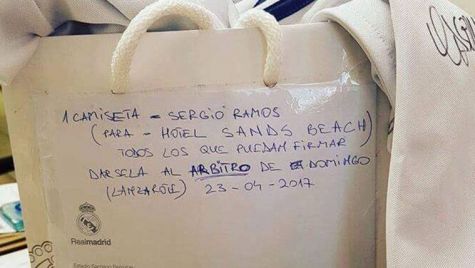 1 CAMISETA - SERGIO RAMOS
(PARA - HOTEL SANDS BEACH)
TODOS LOS QUE PUEDAN FIRMAR
DARSELA AL ARBITRO DE DOMINGO
(LANZAROTE) 23-04-2017
Realmadrid
Estadio Santiago Bernabéu